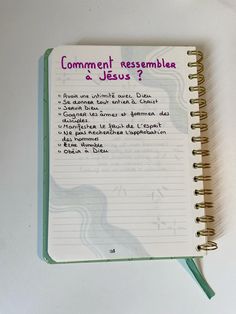 Comment ressembler
à Jésus ?
- Avoir une intimité avec Dieu
- Se donner tout entier à Christ
- Servir Dieu
- Gagner les âmes et former des
disciples
- Manifester le fruit de l'esprit
- Ne pas rechercher l'approbation
des hommes
- Être humble
- Obéir à Dieu